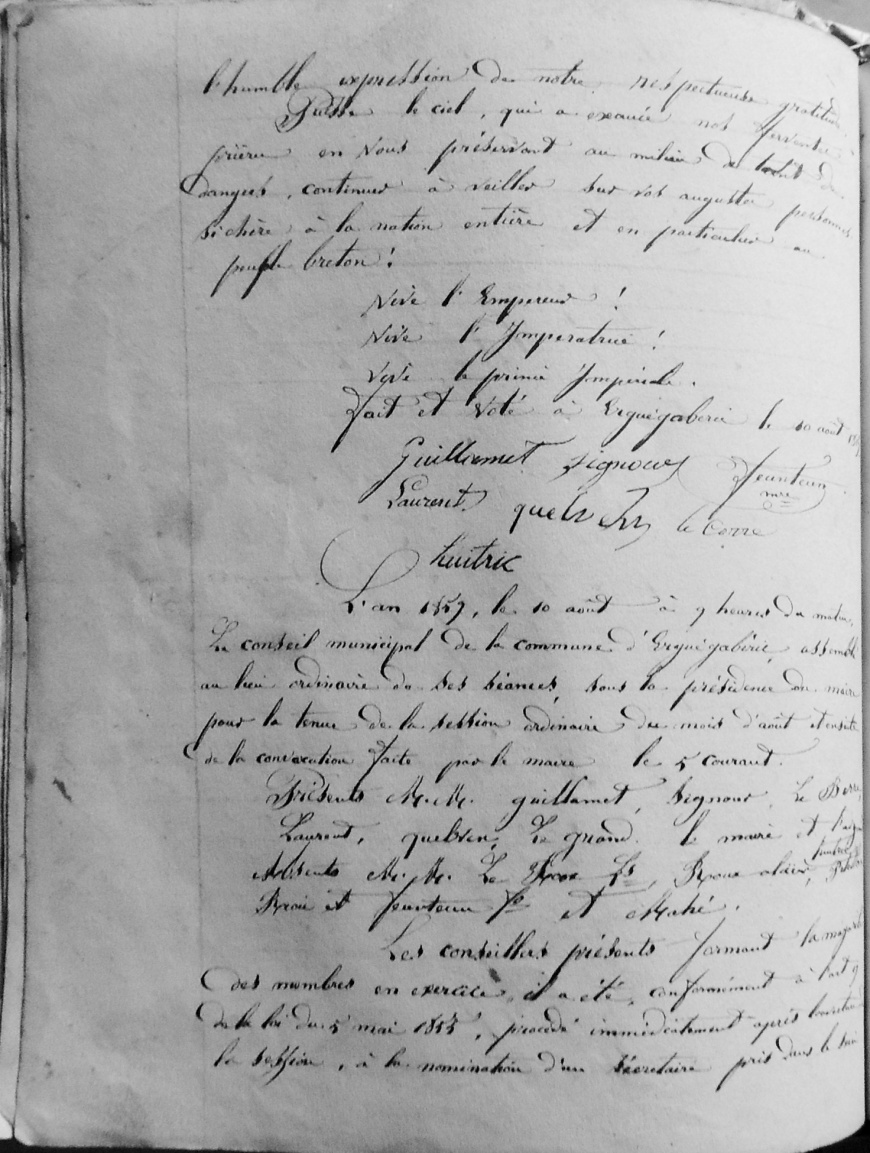 l'humble expression de notre respectueuse gratitude
Puisse le ciel, qui a exaucé nos ferventes
prières en vous préservant au milieu de tant de
dangers, continuer à veiller sur vos augustes personnes
si chère à la nation entière et en particulier au
peuple breton !
Vive l'Empereur !
Vive l'Impératrice !
Vive le prince Impérial.
Fait et voté à Ergué gabéric le 10 août
Guillamet Signour Jeanteur
Laurent quelven mre le Corre
huitric
L'an 1857, le 10 août à 9 heures du matin,
Le conseil municipal de la commune d'Ergué gabéric, assemblé
au lieu ordinaire de ses séances, sous la présidence du maire
pour la tenue de la session ordinaire du mois d'août et ensuite
de la convocation faite par le maire le 5 courant.
Présents M.M. guillamet, Signour, Le Berre,
Laurent, quelven, Le grand. le maire et l'adj
huitric
Absents M.M. Le
et Jeanteur et Mahé.
Les conseillers présents formant la majorité
des membres en exercice, il a été, conformément à l'art 9
de la loi du 5 mai 1855, procédé immédiatement après l'ouverture
la session, à la nomination d'un sécretaire pris dans le sein